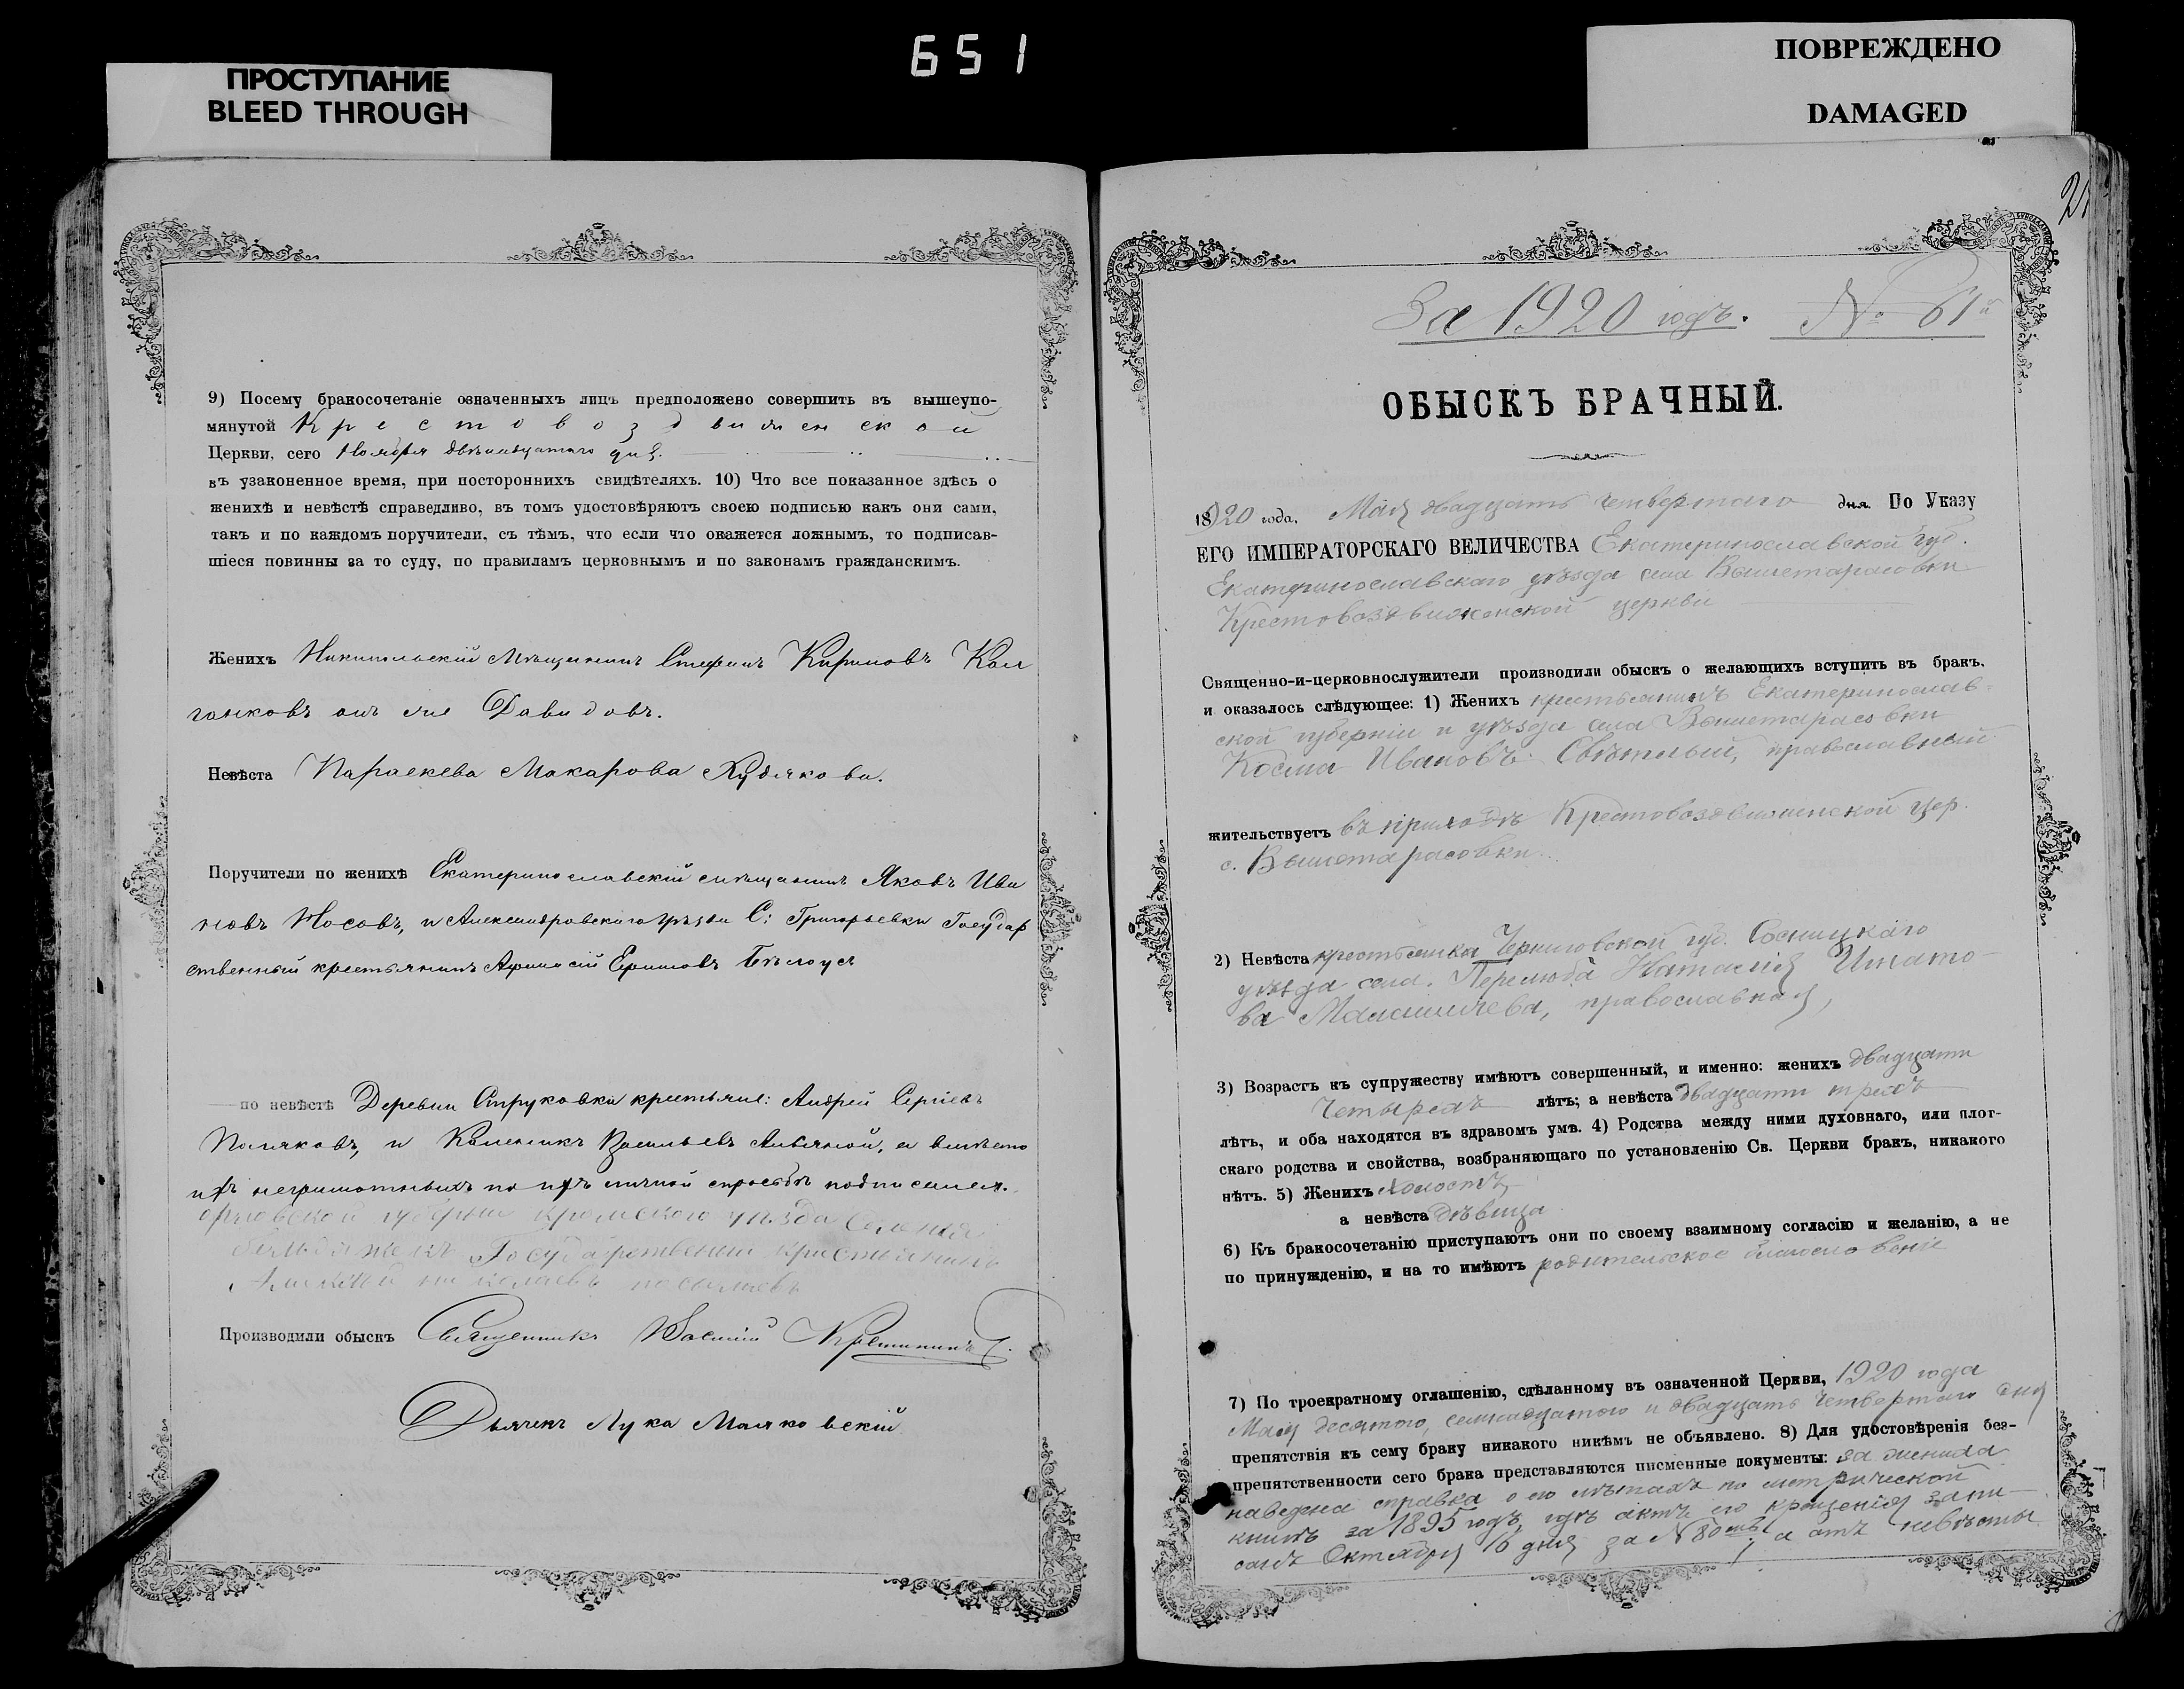 651
ПРОСТУПАНИЕ
BLEED THROUGH
ПОВРЕЖДЕНО
DAMAGED
9) Посему бракосочетаніе означенныхъ лицъ предположено совершить въ вышеупо-
мянутой Крестовоздвиженской
Церкви, сего Ноября двѣнадцатаго дня.
въ узаконенное время, при постороннихъ свидѣтеляхъ. 10) Что все показанное здѣсь о
женихѣ и невѣстѣ справедливо, въ томъ удостовѣряютъ своею подписью какъ они сами,
такъ и по каждомъ поручители, съ тѣмъ, что если что окажется ложнымъ, то подписав-
шіеся повинны за то суду, по правиламъ церковнымъ и по законамъ гражданскимъ.
Женихъ Мѣщанинъ Стефанъ
онъ же Давидовъ.
Невѣста Параскева Макарова Худякова.
Поручители по женихѣ Екатеринославскій мѣщанинъ Яковъ Ива
новъ Носовъ, и Александровскаго уѣзда С: Григорьевки Государ
ственный крестьянинъ Афанасій Ефимовъ Бѣлоусъ
по невѣстѣ Деревни Струковки крестьяне: Андрей Сергіевъ
Поляковъ, и Васильевъ а вмѣсто
ихъ неграмотныхъ по ихъ личной просьбѣ подписался.
орловской губерніи кромского уѣзда
Государственный крестьянинъ
николаевъ
Производили обыскъ Священникъ
Дьячекъ Лука Маяковскій
21
За 1920 годъ. № 61й
ОБЫСКЪ БРАЧНЫЙ.
1920 года, Мая двадцать четвертаго дня. По Указу
ЕГО ИМПЕРАТОРСКАГО ВЕЛИЧЕСТВА Екатеринославской губ.
Екатеринославскаго уѣзда села Вышетарасовки
Крестовоздвиженской церкви
Священно-и-церковнослужители производили обыскъ о желающихъ вступить въ бракъ,
и оказалось слѣдующее: 1) Женихъ крестьянинъ Екатеринослав-
ской губерніи и уѣзда села Вышетарасовки
Косма Ивановъ Свѣтлый, православный
жительствуетъ въ приходѣ Крестовоздвиженской цер.
с. Вышетарасовки.
2) Невѣста крестьянка Черниговской губ. Сосницкаго
уѣзда села Перелюба Наталія Игнато-
ва православная,
3) Возрастъ къ супружеству имѣютъ совершенный, и именно: женихъ двадцати
четырехъ лѣтъ; а невѣста двадцати трехъ
лѣтъ, и оба находятся въ здравомъ умѣ. 4) Родства между ними духовнаго, или плот-
скаго родства и свойства, возбраняющаго по установленію Св. Церкви бракъ, никакого
нѣтъ. 5) Женихъ холостъ,
а невѣста дѣвица
6) Къ бракосочетанію приступаютъ они по своему взаимному согласію и желанію, а не
по принужденію, и на то имѣютъ родительское благословеніе
7) По троекратному оглашенію, сдѣланному въ означенной Церкви, 1920 года
Мая десятого, семнадцатого и двадцать четвертаго дня
препятствія къ сему браку никакого никѣмъ не объявлено. 8) Для удостовѣренія без-
препятственности сего брака представляются писменные документы: за жениха
наведена справка о его лѣтахъ по метрической
книгѣ за 1895 годъ, гдѣ актъ его крещенія запи-
санъ Октября 16 дня за № 80мъ, а отъ невѣсты